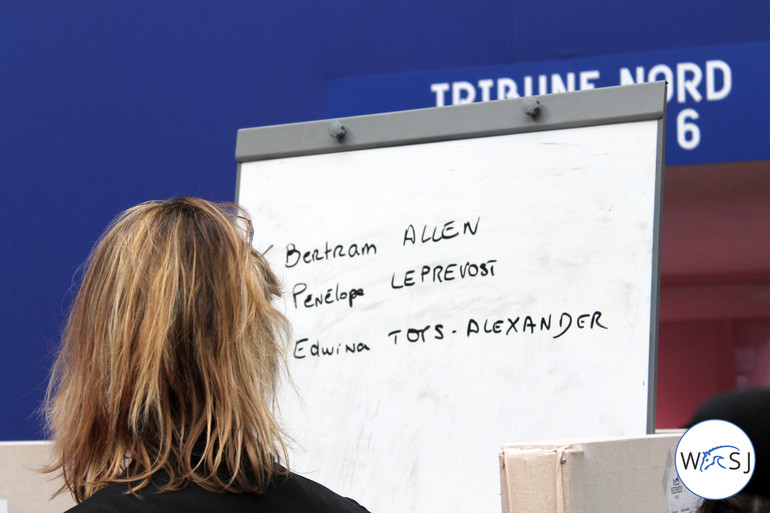 TRIBUNE NORD
6
✓ Bertram ALLEN
Penélope LEPREVOST
Edwina TOPS-ALEXANDER
W SJ